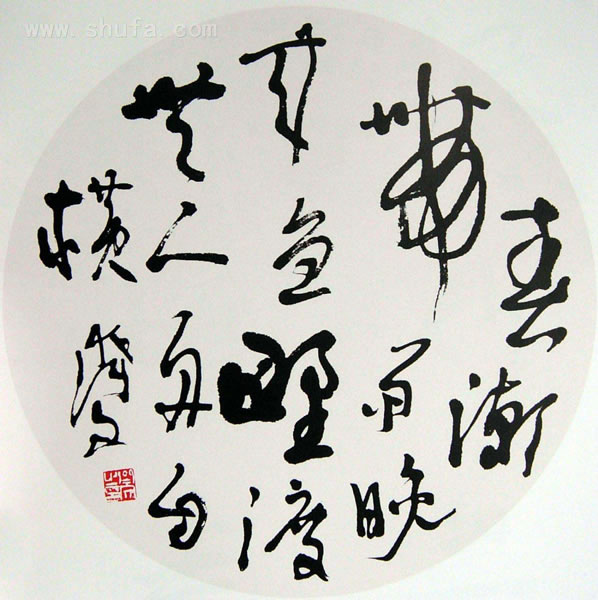 www.shufa.com
春潮
帶雨晚
来急野渡
無人舟自
横